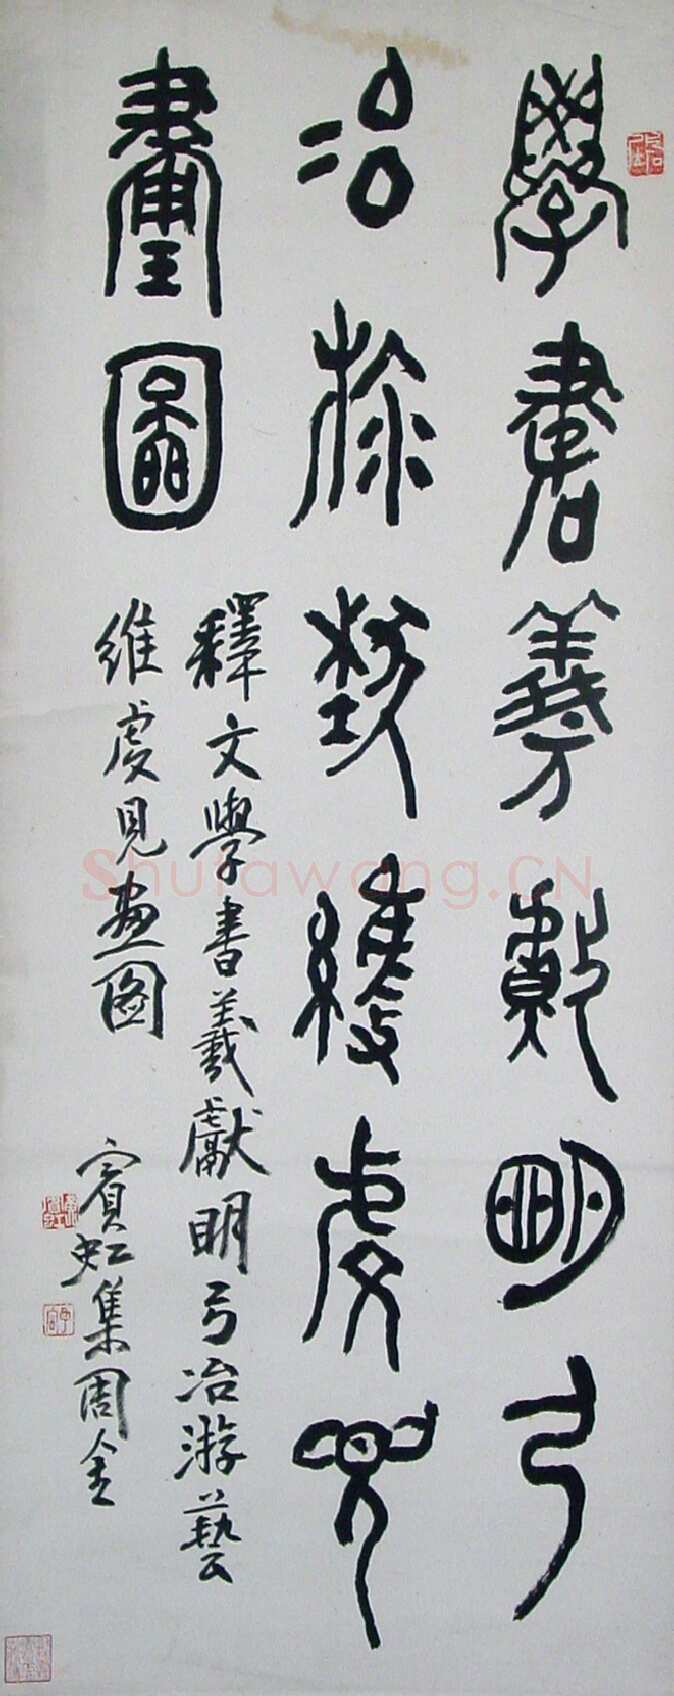 學書羲獻明弓
冶游藝維虔見
畫圖
釋文學書羲獻明弓冶游藝
維虔見畫圖
賓虹集周金
Shufawang.CN